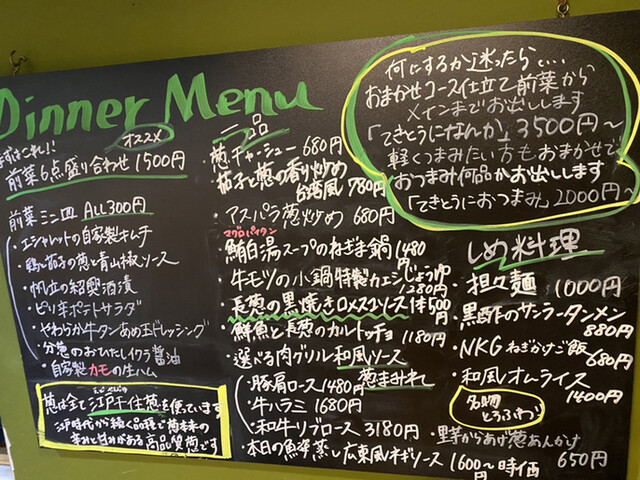 Dinner Menu
まずはこれ!!
オススメ
前菜6点盛り合わせ 1500円
前菜ミニ皿 ALL300円
・エシャレットの自家製キムチ
・鶏と茄子の葱と青山椒ソース
・帆立の紹興酒漬
・ピリ辛ポテトサラダ
・やわらか牛タンあめ玉ドレッシング
・分葱のおひたしイクラ醤油
・自家製カモの生ハム
葱は全て江戸千住葱を使っています
江戸時代から続く品種で葱本来の
辛みと甘みがある高品質葱です
一品
葱チャーシュー 680円
茄子と葱の香り炒め
台湾風 780円
・アスパラ葱炒め 680円
マグロパイタン
・鮪白湯スープのねぎま鍋 1480円
・牛モツの小鍋特製カエシじょうゆ
1280円
・長葱の黒焼きロメスコソース 1本500円
・鮮魚と長葱のカルトッチョ 1180円
・選べる肉グリル和風ソース
葱まみれ
・豚肩ロース 1480円
・牛ハラミ 1680円
・和牛リブロース 3180円
・本日の魚姿蒸し広東風ネギソース 1600円〜時価
何にするか迷ったら、...
おまかせコース仕立て前菜から
メインまでお出しします
「てきとうになんか」3500円〜
軽くつまみたい方もおまかせで
おつまみ何品かお出しします
「てきとうにおつまみ」2000円〜
しめ料理
・担々麺 1000円
・黒酢のサンラータンメン
880円
・NKGねぎかけご飯
680円
・和風オムライス
1400円
名物
とろふわ
・里芋からあげ葱あんかけ
650円